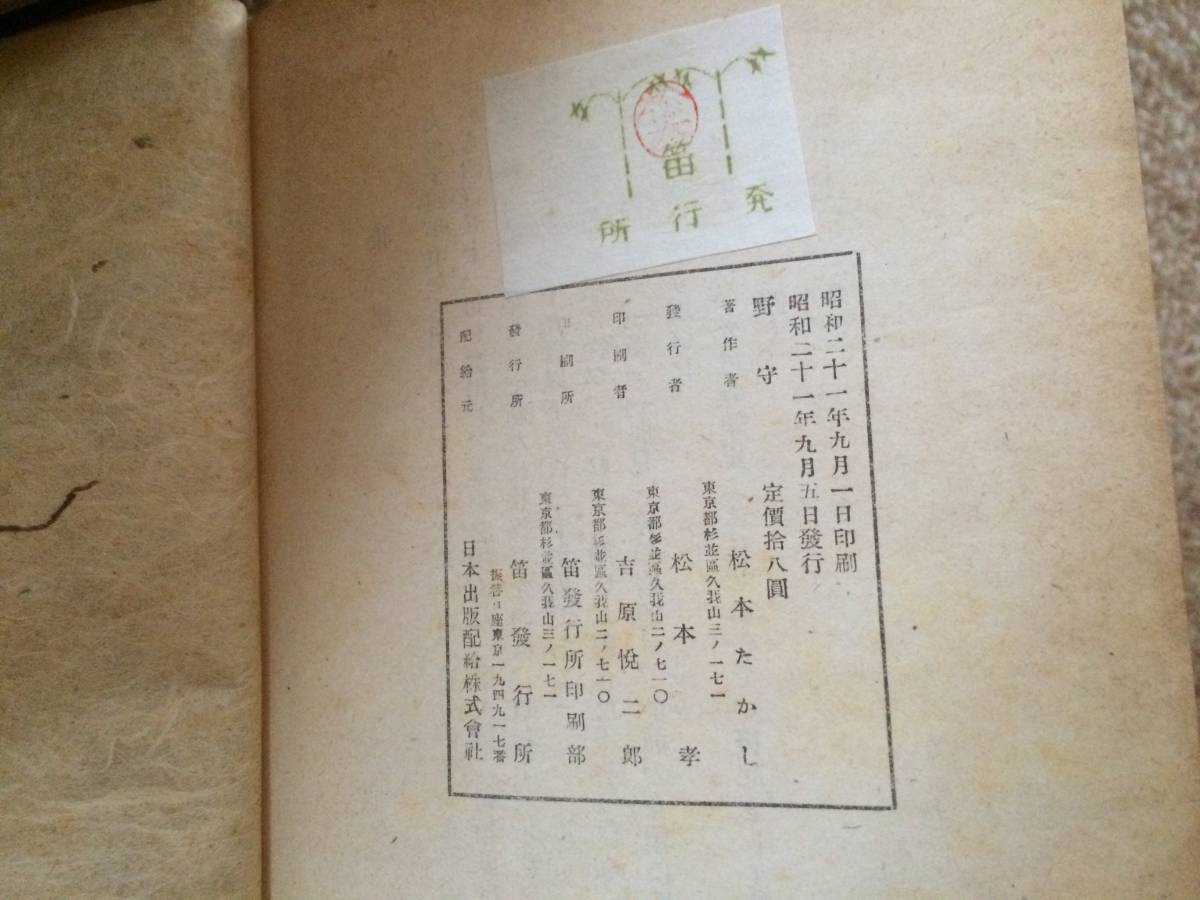 笛
発行所
昭和二十一年九月一日印刷
昭和二十一年九月五日發行
野守
定價拾八圓
著作者
東京都杉並區久我山三ノ一七一
松本たかし
發行者
東京都杉並區久我山二ノ七一〇
松本孝
印刷者
東京都杉並區久我山二ノ七一〇
吉原悅二郎
印刷所
笛發行所印刷部
東京都杉並區久我山三ノ一七一
發行所
笛發行所
振替口座東京一九四九一七番
配給元
日本出版配給株式會社